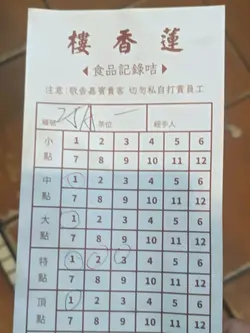 樓香蓮
食品記錄咭
注意：敬告嘉賓貴客 切勿私自打賞員工
檯號 25A 茶位 一 經手人
小點 1 2 3 4 5 6
7 8 9 10 11 12
中點 1 2 3 4 5 6
7 8 9 10 11 12
大點 1 2 3 4 5 6
7 8 9 10 11 12
特點 1 2 3 4 5 6
7 8 9 10 11 12
頂點 1 2 3 4 5 6
7 8 9 10 11 12